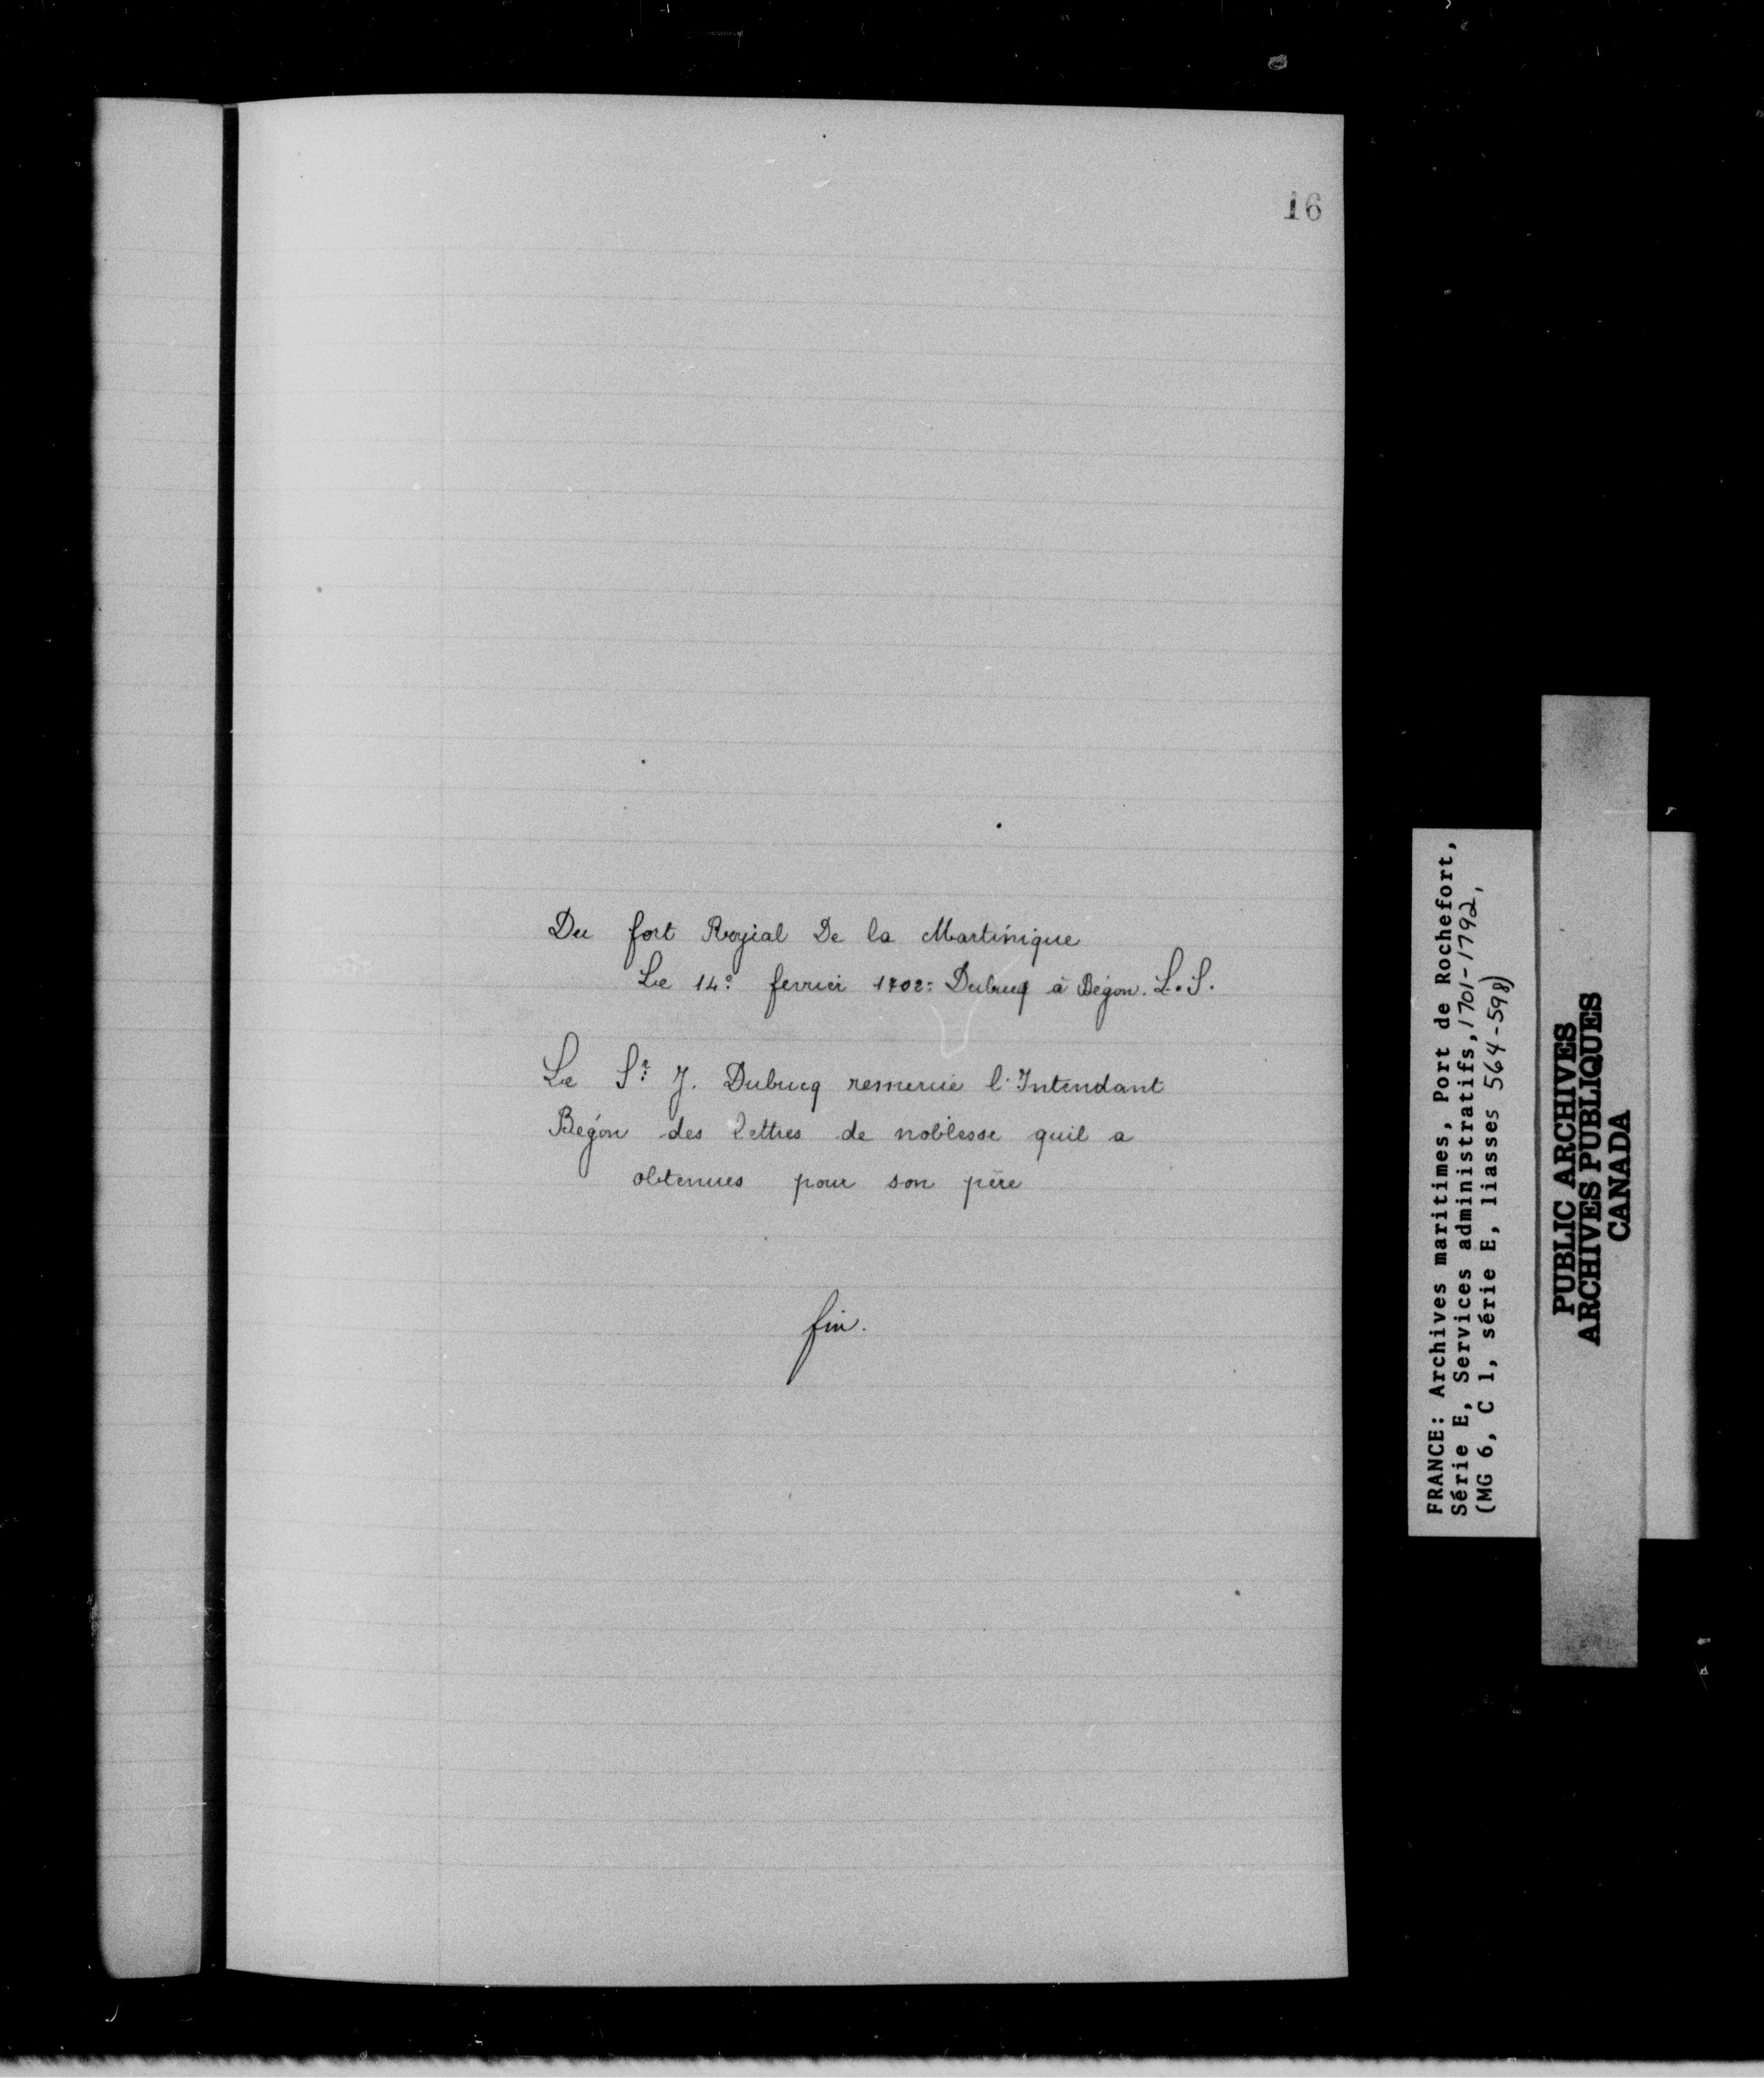 16
Du fort Royial De la Martinique
Le 14e fevrier 1702: Dubucq à Bégon. L.S.
Le Sr: J. Dubucq remercie l'Intendant
Bégon des lettres de noblesse quil a
obtenues pour son père
fin.
FRANCE: Archives maritimes, Port de Rochefort,
Série E, Services administratifs, 1701-1792,
(MG 6, C 1, série E, liasses 564-598)
PUBLIC ARCHIVES
ARCHIVES PUBLIQUES
CANADA